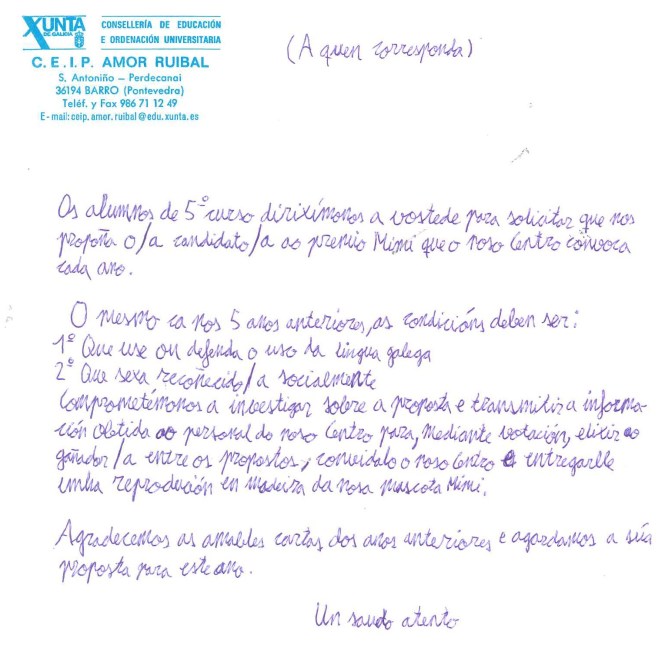 XUNTA
DE GALICIA
CONSELLERÍA DE EDUCACIÓN
E ORDENACIÓN UNIVERSITARIA
C.E.I.P. AMOR RUIBAL
S. Antoniño – Perdecanai
36194 BARRO (Pontevedra)
Teléf. y Fax 986 71 12 49
E-mail: ceip.amor.ruibal@edu.xunta.es
(A quen corresponda)
Os alumnos de 5º curso dirixímonos a vostede para solicitar que nos
propoña o/a candidato/a ao premio Mimí que o noso Centro convoca
cada ano.
O mesmo ca nos 5 anos anteriores, as condicións deben ser:
1º Que use ou defenda o uso da lingua galega
2º Que sexa recoñecido/a socialmente
Comprometémonos a investigar sobre a proposta e transmitir a informa-
ción obtida ao persoal do noso Centro para, mediante votación, elixir ao
gañador/a entre os propostos; convidalo o noso Centro e entregarlle
unha reprodución en madeira da nosa mascota Mimí.
Agradecemos as amables cartas dos anos anteriores e agardamos a súa
proposta para este ano.
Un saudo atento